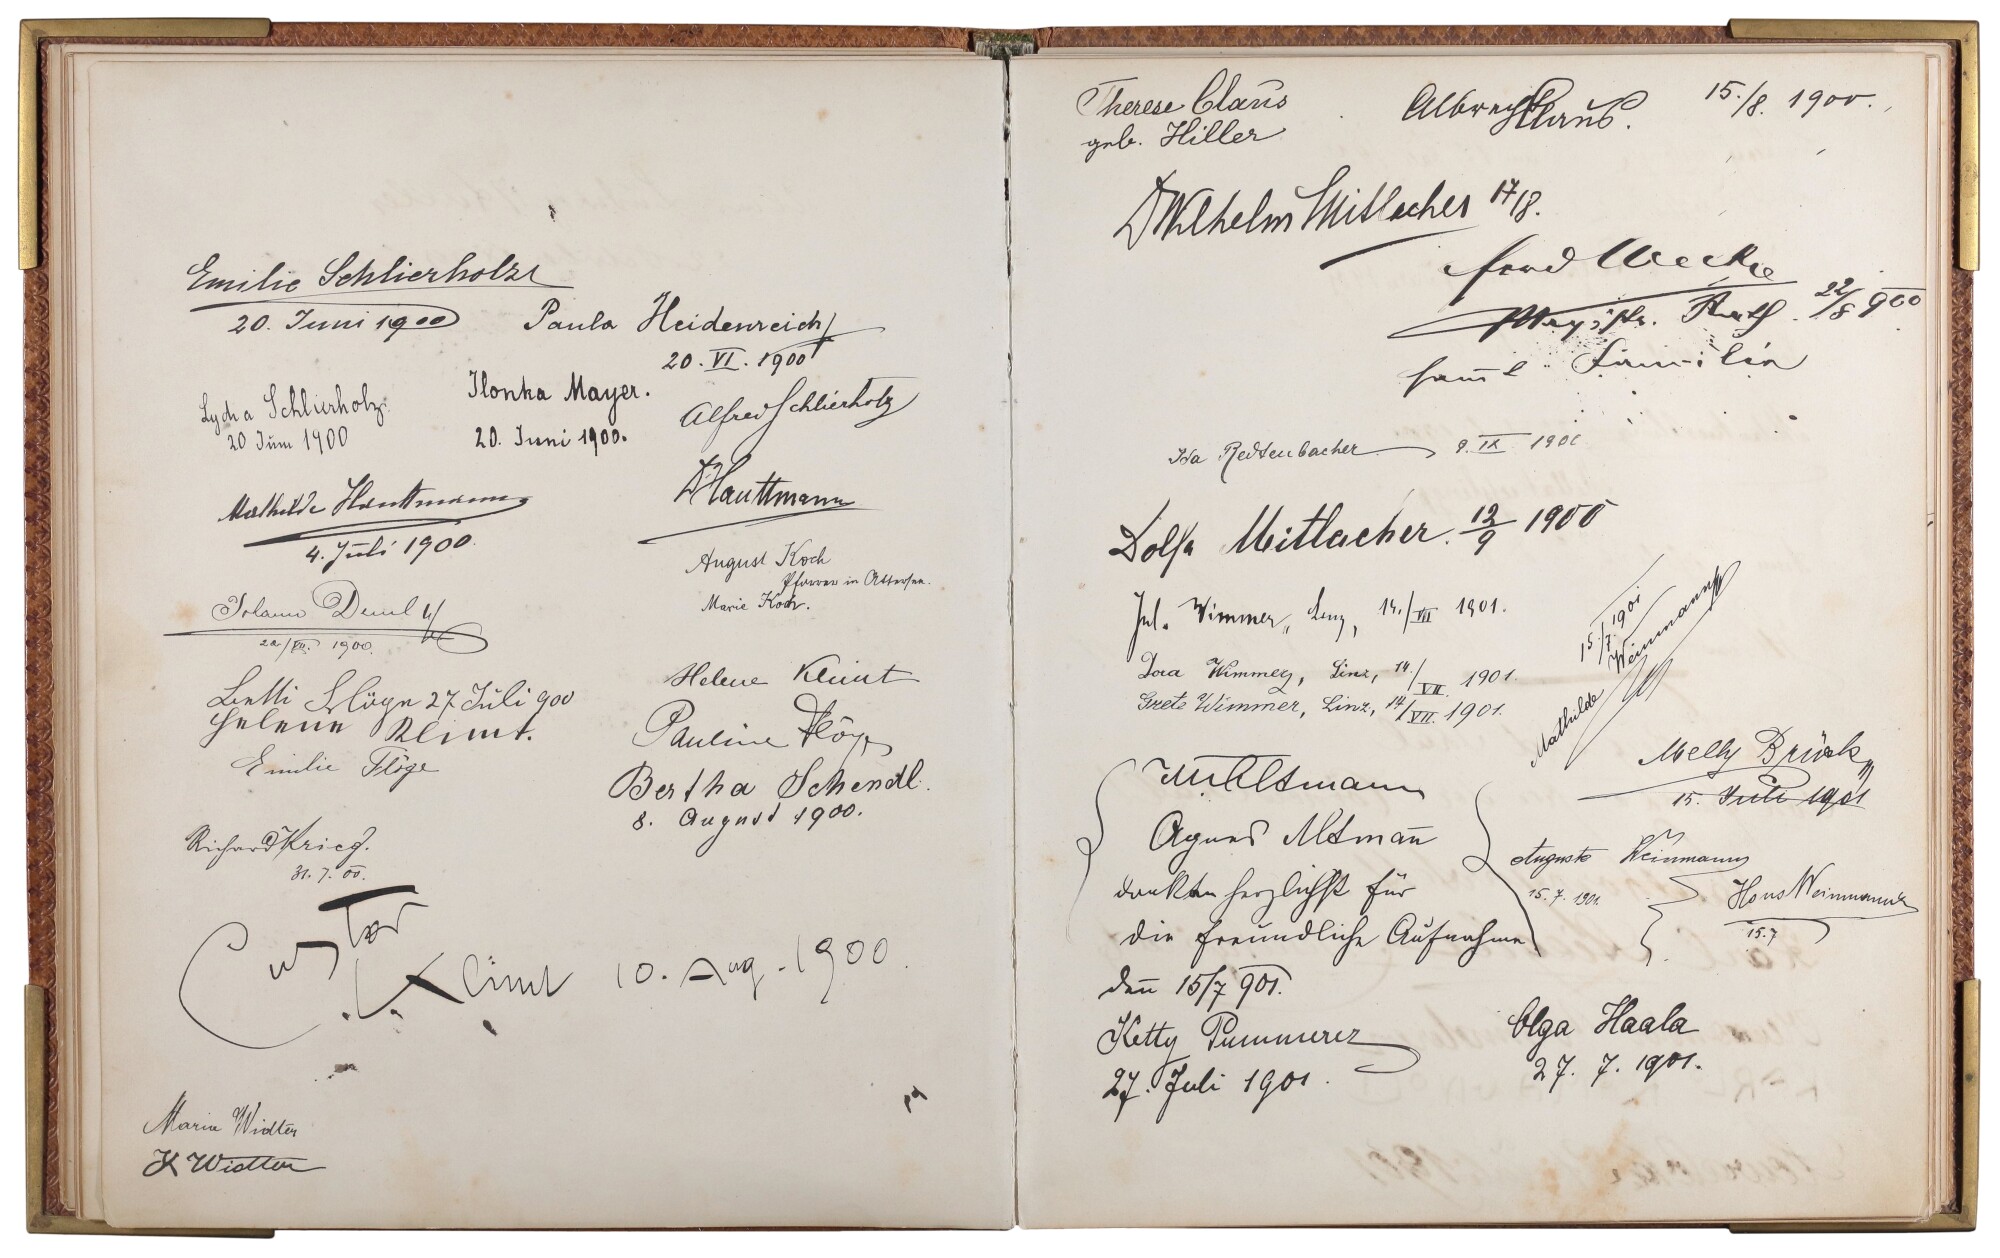 Emilie Schlierholz
20. Juni 1900
Paula Heidenreich
20. VI. 1900
Lydia Schlierholz.
20 Juni 1900
Ilonka Mayer.
20. Juni 1900.
Alfred Schlierholz
Mathilde Hauttmann
4. Juli 1900.
Dr Hauttmann
August Koch
Pfarrer in Attersee.
Marie Koch.
Deml
1900.
Betti Flöge 27 Juli 900
Helene Klimt.
Emilie Flöge
Helene Klimt
Pauline Flöge
Bertha Schendl.
8. August 1900.
Richard Krieg.
31. 7. 00.
Gustav
Klimt 10. Aug. 1900.
Marie Widter
K Widter
Therese Claus
geb. Hiller
Albrecht Claus.
15./8. 1900.
Dr Wilhelm Mitlacher 17/8.
22/8 900
samt Familie
Ida Redtenbacher 9. IX 1900
Mitlacher. 12/9 1900
Jul. Wimmer, Linz, 14./VII 1901.
Dora Wimmer, Linz, 14./VII. 1901.
Grete Wimmer, Linz, 14/VII. 1901.
15./7. 1901
Mathilde Weinmann
Melly Brück
15. Juli 1901
Altmann
Agnes Altmann
danken herzlichst für
die freundliche Aufnahme
den 15/7 901.
Auguste Weinmann
15. 7. 1901.
Hans Weinmann
15.7
Ketty Pummerer
27. Juli 1901.
Olga Haala
27. 7. 1901.